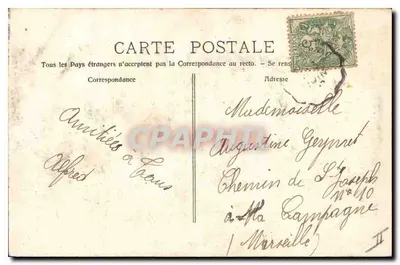 CARTE POSTALE
Tous les Pays étrangers n'acceptent pas la Correspondance au recto. - Se rens
Correspondance
Adresse
Amitiés à Tous
Alfred
Mademoiselle
Augustine
Chemin de St Joseph
n° 10
à Ma Campagne
(Marseille)
II
CPARAMA